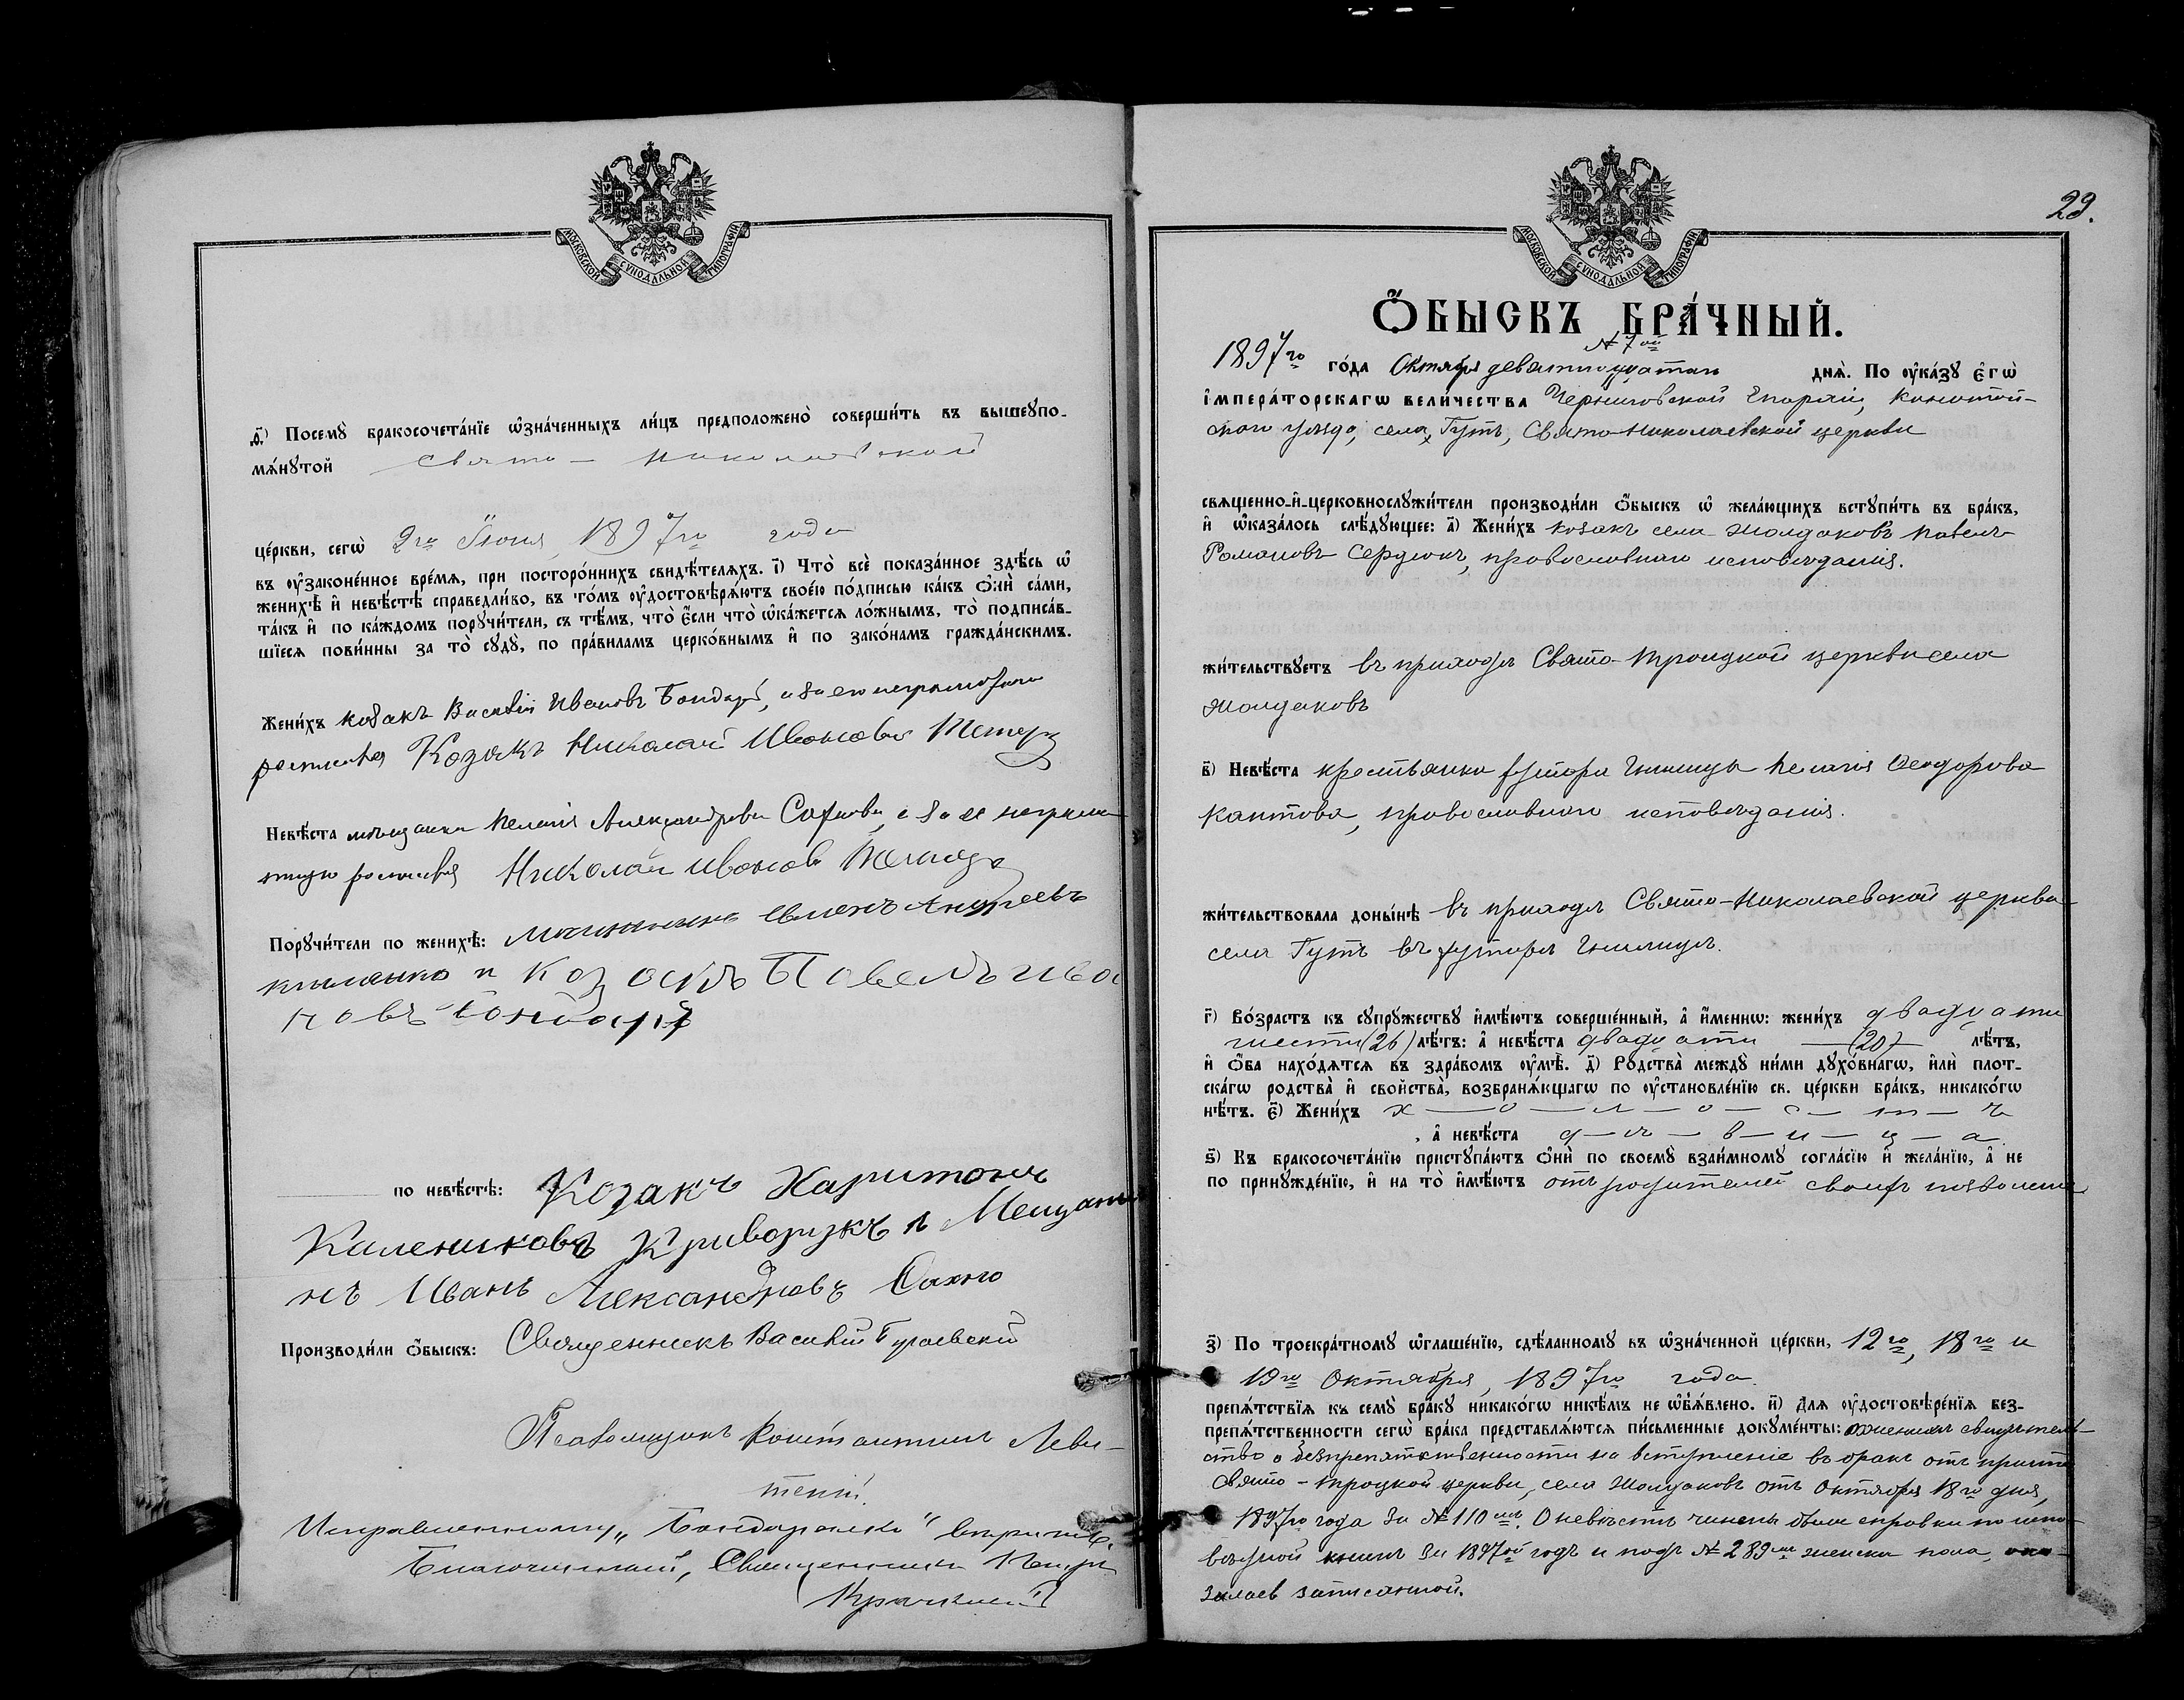 МОСКОВСКОЙ СѴНОДАЛЬНОЙ ТИПОГРАФІИ
д҃) Посемꙋ̀ бракосочета́нїе ѡ҆зна́ченныхъ ли́цъ предположено̀ соверши́ть въ вышеꙋпо-
мѧ́нꙋтой Свято-Николаевской
це́ркви, сегѡ̀ 2го Іюня 1897го года
въ ᲂу҆законе́нное вре́мѧ, при посторо́ннихъ свидѣ́телѧхъ. і҃) Что̀ всѐ показа́нное здѣ́сь ѡ҆
женихѣ̀ и҆ невѣ́стѣ справедли́во, въ то́мъ ᲂу҆достовѣрѧ́ютъ свое́ю по́дписью ка́къ ѻ҆нѝ са́ми,
та́къ и҆ по ка́ждомъ порꙋчи́тели, съ тѣ́мъ, что̀ є҆́сли что̀ ѡ҆ка́жетсѧ ло́жнымъ, то̀ подписа́в-
шїесѧ пови́нны за то̀ сꙋдꙋ̀, по пра́виламъ церко́внымъ и҆ по зако́намъ гражда́нскимъ.
Жени́хъ козакъ Василій Ивановъ Бондарь, а за его неграмотнаго
росписался Козакъ Николай Ивановъ
Невѣ́ста мѣщанка Пелагія Александрова, а за ее неграмо
тную росписався Николай Ивановъ
Порꙋчи́тели по женихѣ̀:
и Козакъ Павелъ Ива
новъ Бондарь
по невѣ́стѣ: Козакъ Харитонъ
Калениковъ Криворукъ и Мещани
нъ Иванъ Александровъ Сахно
Производи́ли ѻ҆́быскъ: Священникъ Василій
Псаломщикъ Константинъ Леви-
Исправленному „Бондаренко“
Благочинный, Священникъ Петръ
МОСКОВСКОЙ СѴНОДАЛЬНОЙ ТИПОГРАФІИ
29.
Ѻ҆́БЫСКЪ БРА́ЧНЫЙ.
№ 7ой
1897го го́да Октября девятнадцатаго днѧ̀. По ᲂу҆ка́зꙋ є҆гѡ̀
і҆мпера́торскагѡ вели́чества Черниговской Епархіи, Конотоп-
скаго уѣзда, села Гутъ, Свято-Николаевской церкви
свѧще́нно-и҆-церковнослꙋжи́тели производи́ли ѻ҆́быскъ ѡ҆ жела́ющихъ встꙋпи́ть въ бра́къ,
и҆ ѡ҆каза́лось слѣ́дꙋющее: а҃) Жени́хъ козакъ села Жолдаковъ Павелъ
Романовъ Сердюкъ, православнаго исповѣданія.
жи́тельствꙋетъ въ приходѣ Свято-Троицкой церкви села
Жолдаковъ
в҃) Невѣ́ста крестьянка хутора Гнилицы Пелагія Ѳеодорова
Кантова, православнаго исповѣданія.
жи́тельствовала доны́нѣ въ приходѣ Свято-Николаевской церкви
села Гутъ въ хуторѣ Гнилицѣ.
г҃) Во́зрастъ къ сꙋпрꙋ́жествꙋ и҆мѣ́ютъ соверше́нный, а҆ и҆́меннѡ: жени́хъ двадцати
шести (26) лѣ́тъ: а҆ невѣ́ста двадцати (20) лѣ́тъ,
и҆ ѻ҆́ба нахо́дѧтсѧ въ здра́вомъ ᲂу҆мѣ̀. д҃) Родства̀ междꙋ̀ ни́ми дꙋхо́внагѡ, и҆лѝ плот-
ска́гѡ родства̀ и҆ сво́йства, возбранѧ́ющагѡ по ᲂу҆становле́нїю св. це́ркви бра́къ, никако́гѡ
нѣ́тъ. є҃) Жени́хъ х—о—л—о—с—т—ъ
, а҆ невѣ́ста д—ѣ—в—и—ц—а
ѕ҃) Къ бракосочета́нїю пристꙋпа́ютъ ѻ҆нѝ по своемꙋ̀ взаи́мномꙋ согла́сїю и҆ жела́нїю, а҆ не
по принꙋжде́нїю, и҆ на то̀ и҆мѣ́ютъ отъ родителей своихъ позволеніе
з҃) По троекра́тномꙋ ѡ҆глаше́нїю, сдѣ́ланномꙋ въ ѡ҆зна́ченной це́ркви, 12го, 18го и
19го Октября, 1897го года.
препѧ́тствїѧ къ семꙋ̀ бра́кꙋ никако́гѡ никѣ́мъ не ѡ҆б̾ѧ́влено. и҃) Длѧ ᲂу҆достовѣре́нїѧ без-
препѧ́тственности сегѡ̀ бра́ка представлѧ́ютсѧ пи́сьменные докꙋме́нты: о женихѣ свидѣтель-
ство о безпрепятственности на вступленіе въ бракъ отъ причта
Свято-Троцкой церкви, села Жолдаковъ отъ Октября 18го дня,
1897го года за № 110мъ. О невѣстѣ чинены были справки по испо-
вѣдной книгѣ за 1897ой годъ и подъ № 289мъ женска пола, ока-
залась записанной.